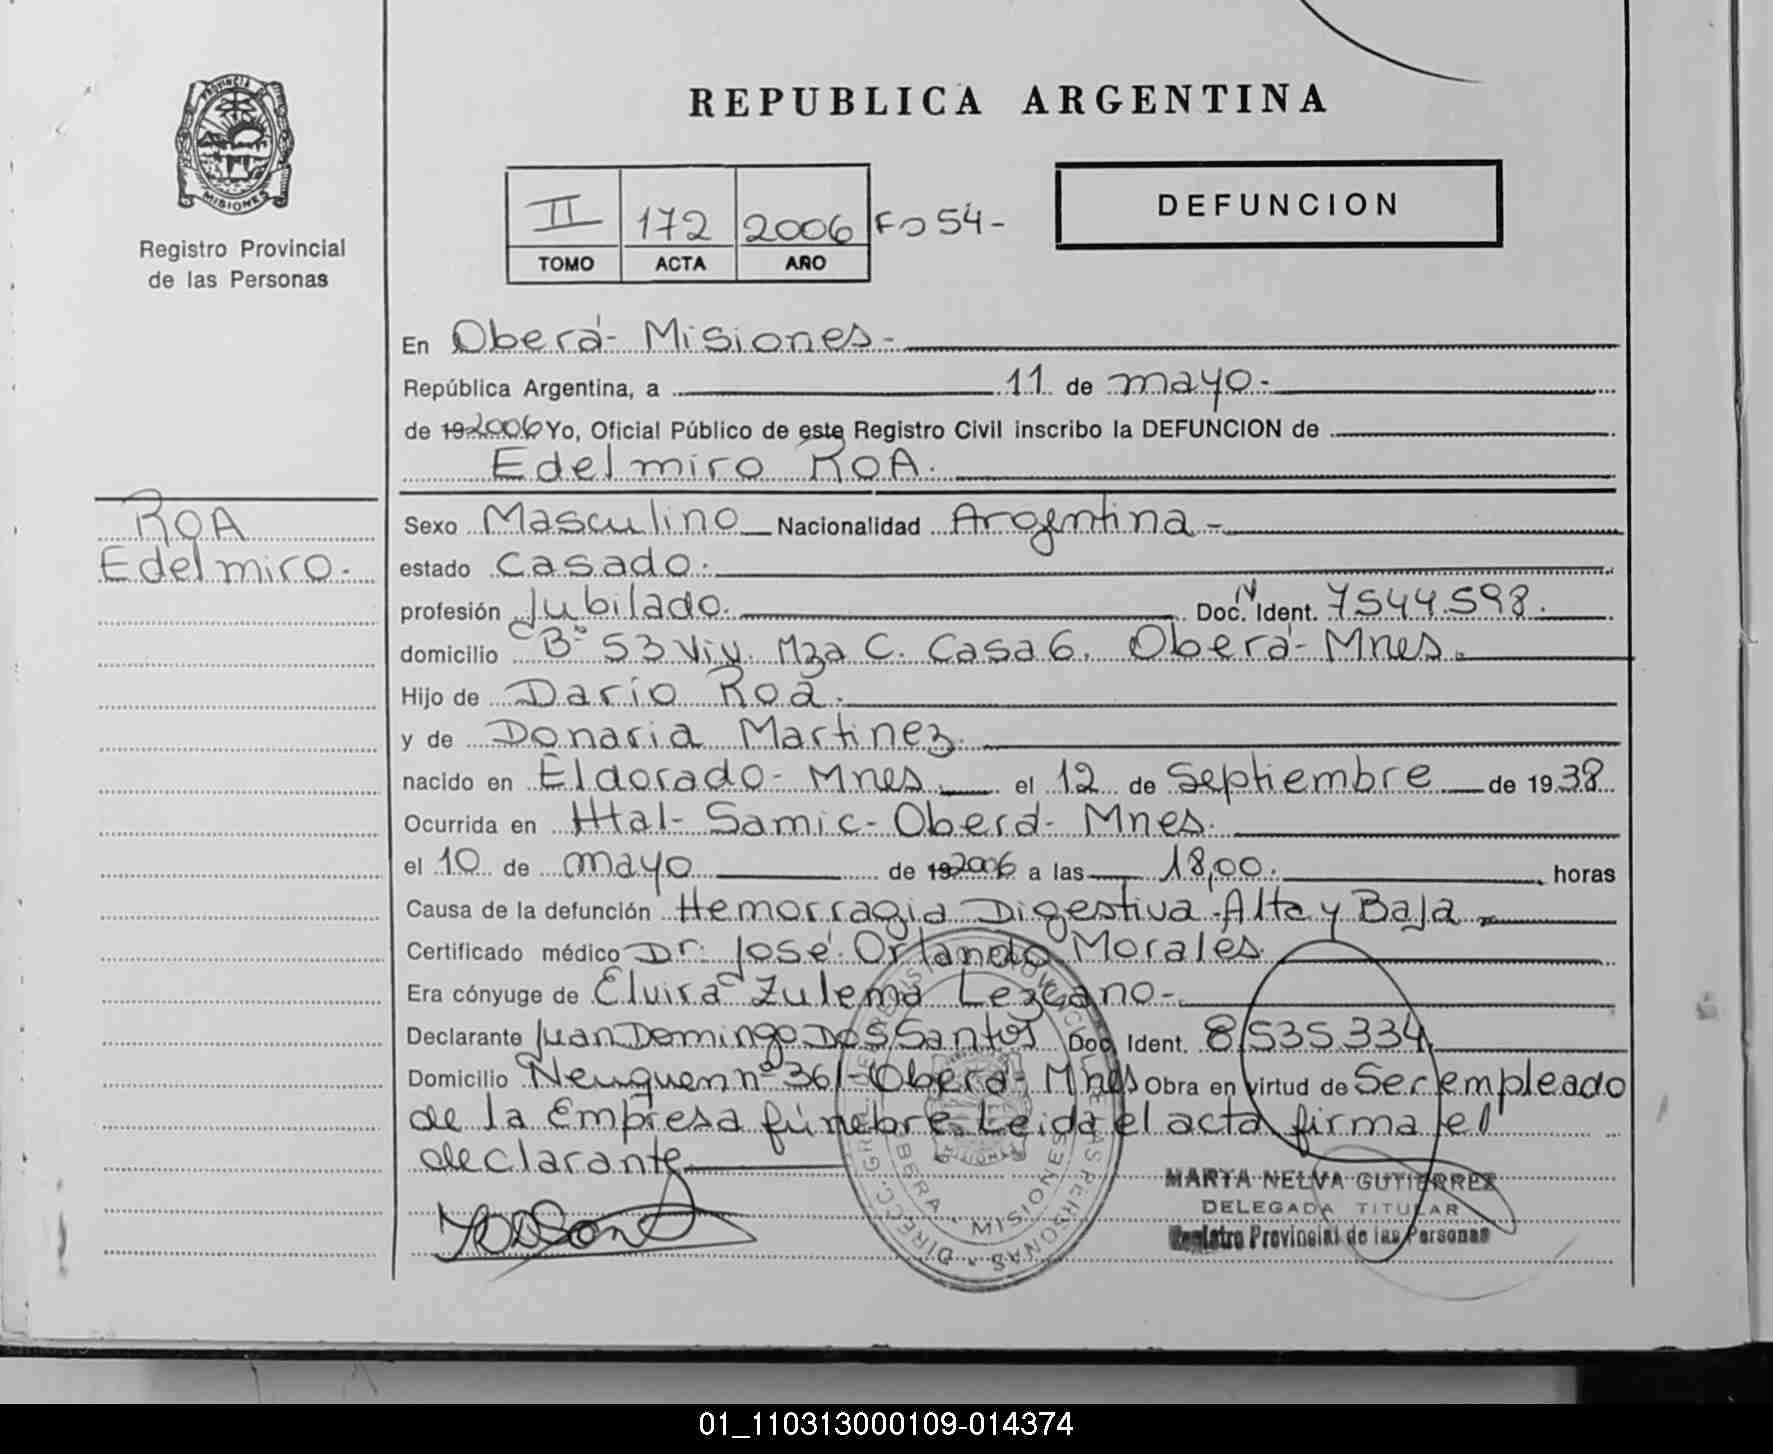 PROVINCIA DE
MISIONES
Registro Provincial
de las Personas
REPUBLICA ARGENTINA
II 172 2006 Fo 54-
TOMO ACTA AÑO
DEFUNCION
En Oberá- Misiones-
República Argentina, a 11 de mayo.-
de 19 2006 Yo, Oficial Público de este Registro Civil inscribo la DEFUNCION de
Edelmiro ROA.
ROA
Edelmiro.
Sexo Masculino Nacionalidad Argentina-
estado casado.
profesión Jubilado. Doc. N Ident. 7544.598.
domicilio Bº 53 Viv. Mza C. Casa 6. Oberá- Mnes.
Hijo de Darío Roa.
y de Donaria Martinez.
nacido en Eldorado- Mnes. el 12 de Septiembre de 1938
Ocurrida en Htal- Samic- Oberá- Mnes.
el 10 de mayo de 19 2006 a las 18,00. horas
Causa de la defunción Hemorragia Digestiva Alta y Baja
Certificado médico Dr. José Orlando Morales
Era cónyuge de Elvira Zulema Lezcano-
Declarante Juan Domingo Dos Santos Doc. Ident. 8.535.334
Domicilio Neuquen nº 361- Oberá- Mnes Obra en virtud de Ser empleado
de la Empresa fúnebre. Leida el acta firma el
declarante
MARTA NELVA GUTIERREZ
DELEGADA TITULAR
Registro Provincial de las Personas
OBERA - MISIONES
01_110313000109-014374